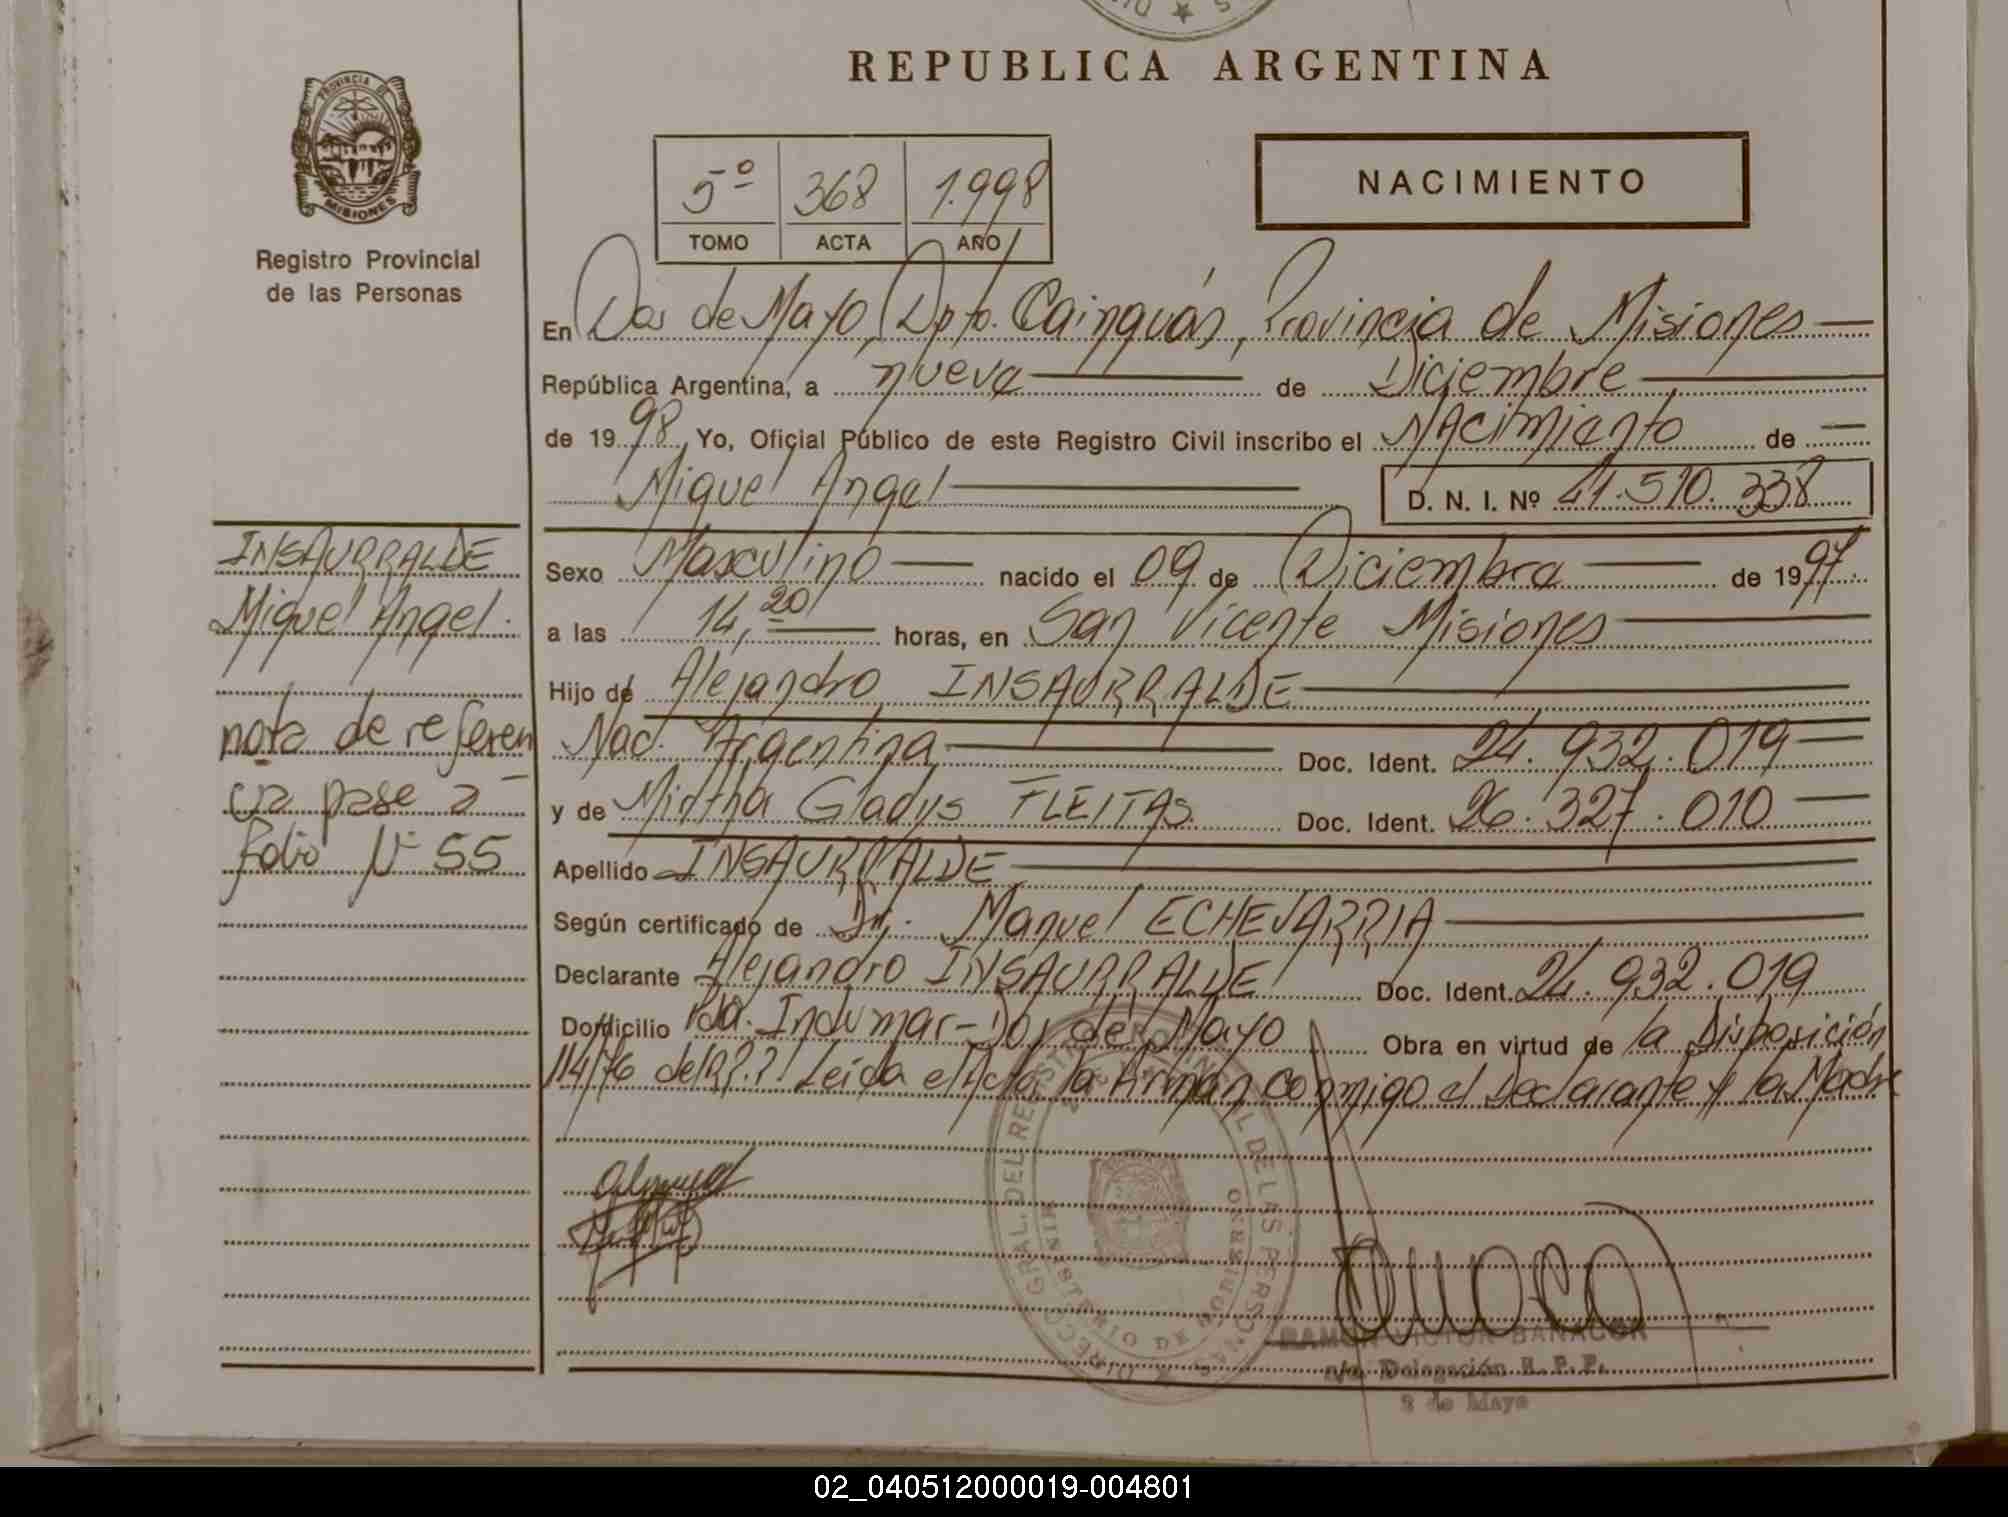 REPUBLICA ARGENTINA
PROVINCIA DE
MISIONES
Registro Provincial
de las Personas
5º 368 1.998
TOMO ACTA AÑO
NACIMIENTO
En Dos de Mayo, Dpto. Cainguás, Provincia de Misiones
República Argentina, a nueve de Diciembre
de 1998, Yo, Oficial Público de este Registro Civil inscribo el NAcimiento de
Miguel Angel D. N. I. Nº 41.510.338
INSAURRALDE
Miguel Angel.
nota de referen
cia pase a
folio Nº 55
Sexo Masculino nacido el 09 de Diciembre de 1997.
a las 14,20 horas, en San Vicente Misiones
Hijo de Alejandro INSAURRALDE
Nac. Argentina Doc. Ident. 24.932.019
y de Mirtha Gladys FLEITAS Doc. Ident. 26.327.010
Apellido INSAURRALDE
Según certificado de Dr. Manuel ECHEVARRIA
Declarante Alejandro INSAURRALDE Doc. Ident. 24.932.019
Domicilio Pda. Indumar-Dos de Mayo Obra en virtud de la Disposición
114/76 del R.P.P. Leída el Acta la firman conmigo el Declarante y la Madre
DIRECC. GRAL. DEL REGISTRO PROVINCIAL DE LAS PERSONAS
MINISTERIO DE GOBIERNO
RAMON VICTOR
Delegación R. P. P.
2 de Mayo
02_040512000019-004801